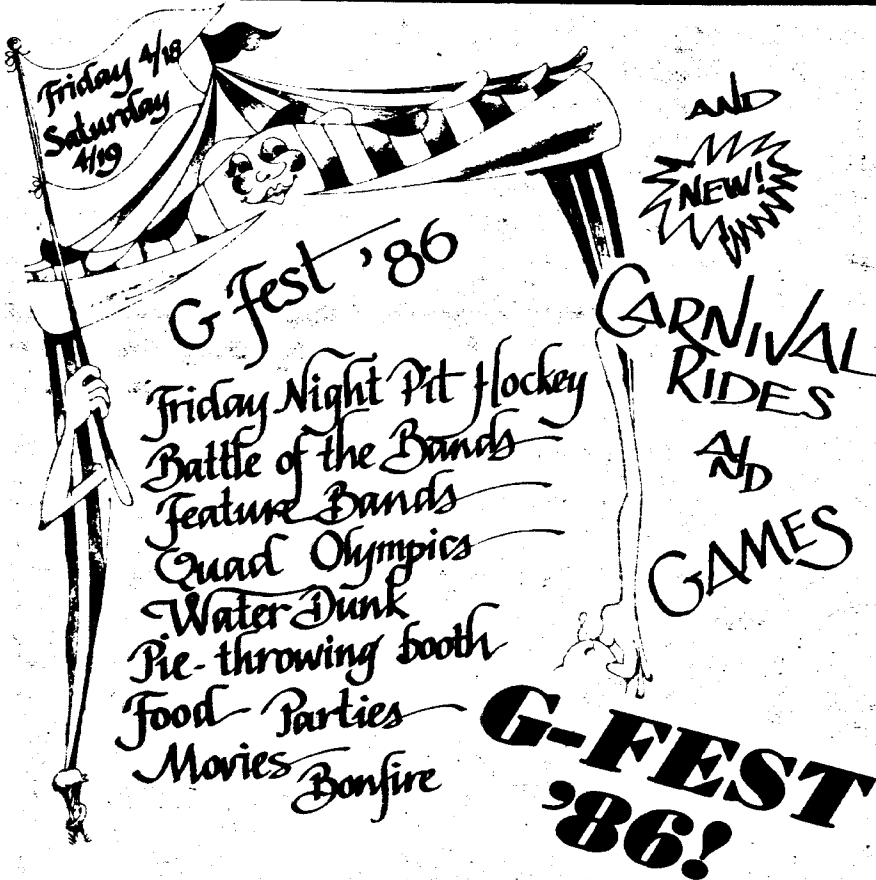 Friday 4/18
Saturday
4/19
G-Fest '86
Friday Night Pit Hockey
Battle of the Bands
Feature Bands
Quad Olympics
Water Dunk
Pie-throwing booth
Food Parties
Movies
Bonfire
AND
NEW!
CARNIVAL
RIDES
AND
GAMES
G-FEST
'86!